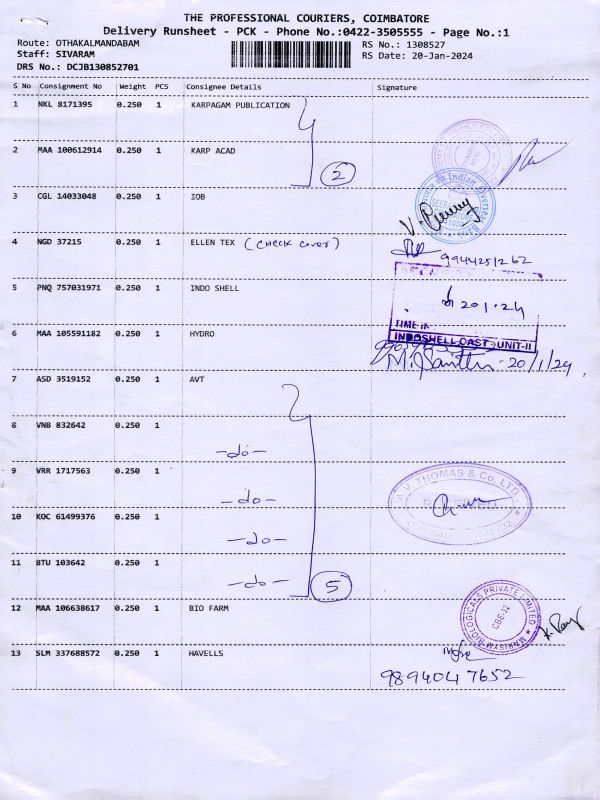 THE PROFESSIONAL COURIERS, COIMBATORE
Delivery Runsheet - PCK - Phone No.:0422-3505555 - Page No.:1
Route: OTHAKALMANDABAM RS No.: 1308527
Staff: SIVARAM RS Date: 20-Jan-2024
DRS No.: DCJB130852701
S No Consignment No Weight PCS Consignee Details Signature
1 NKL 8171395 0.250 1 KARPAGAM PUBLICATION
2 MAA 100612914 0.250 1 KARP ACAD
2
3 CGL 14033048 0.250 1 IOB
Indian Overseas
4 NGD 37215 0.250 1 ELLEN TEX (CHECK Cover)
9944251262
5 PNQ 757031971 0.250 1 INDO SHELL
20 1.24
TIME IN
INDOSHELL CAST UNIT-II
6 MAA 105591182 0.250 1 HYDRO
M. 20/1/24
7 ASD 3519152 0.250 1 AVT
8 VNB 832642 0.250 1
-do-
9 VRR 1717563 0.250 1
-do-
A.V. THOMAS & Co. LTD.
10 KOC 61499376 0.250 1
-do-
11 BTU 103642 0.250 1
-do-
5
12 MAA 106638617 0.250 1 BIO FARM
BIOLOGICALS PRIVATE LIMITED
CBE-32
13 SLM 337688572 0.250 1 HAVELLS
9894047652